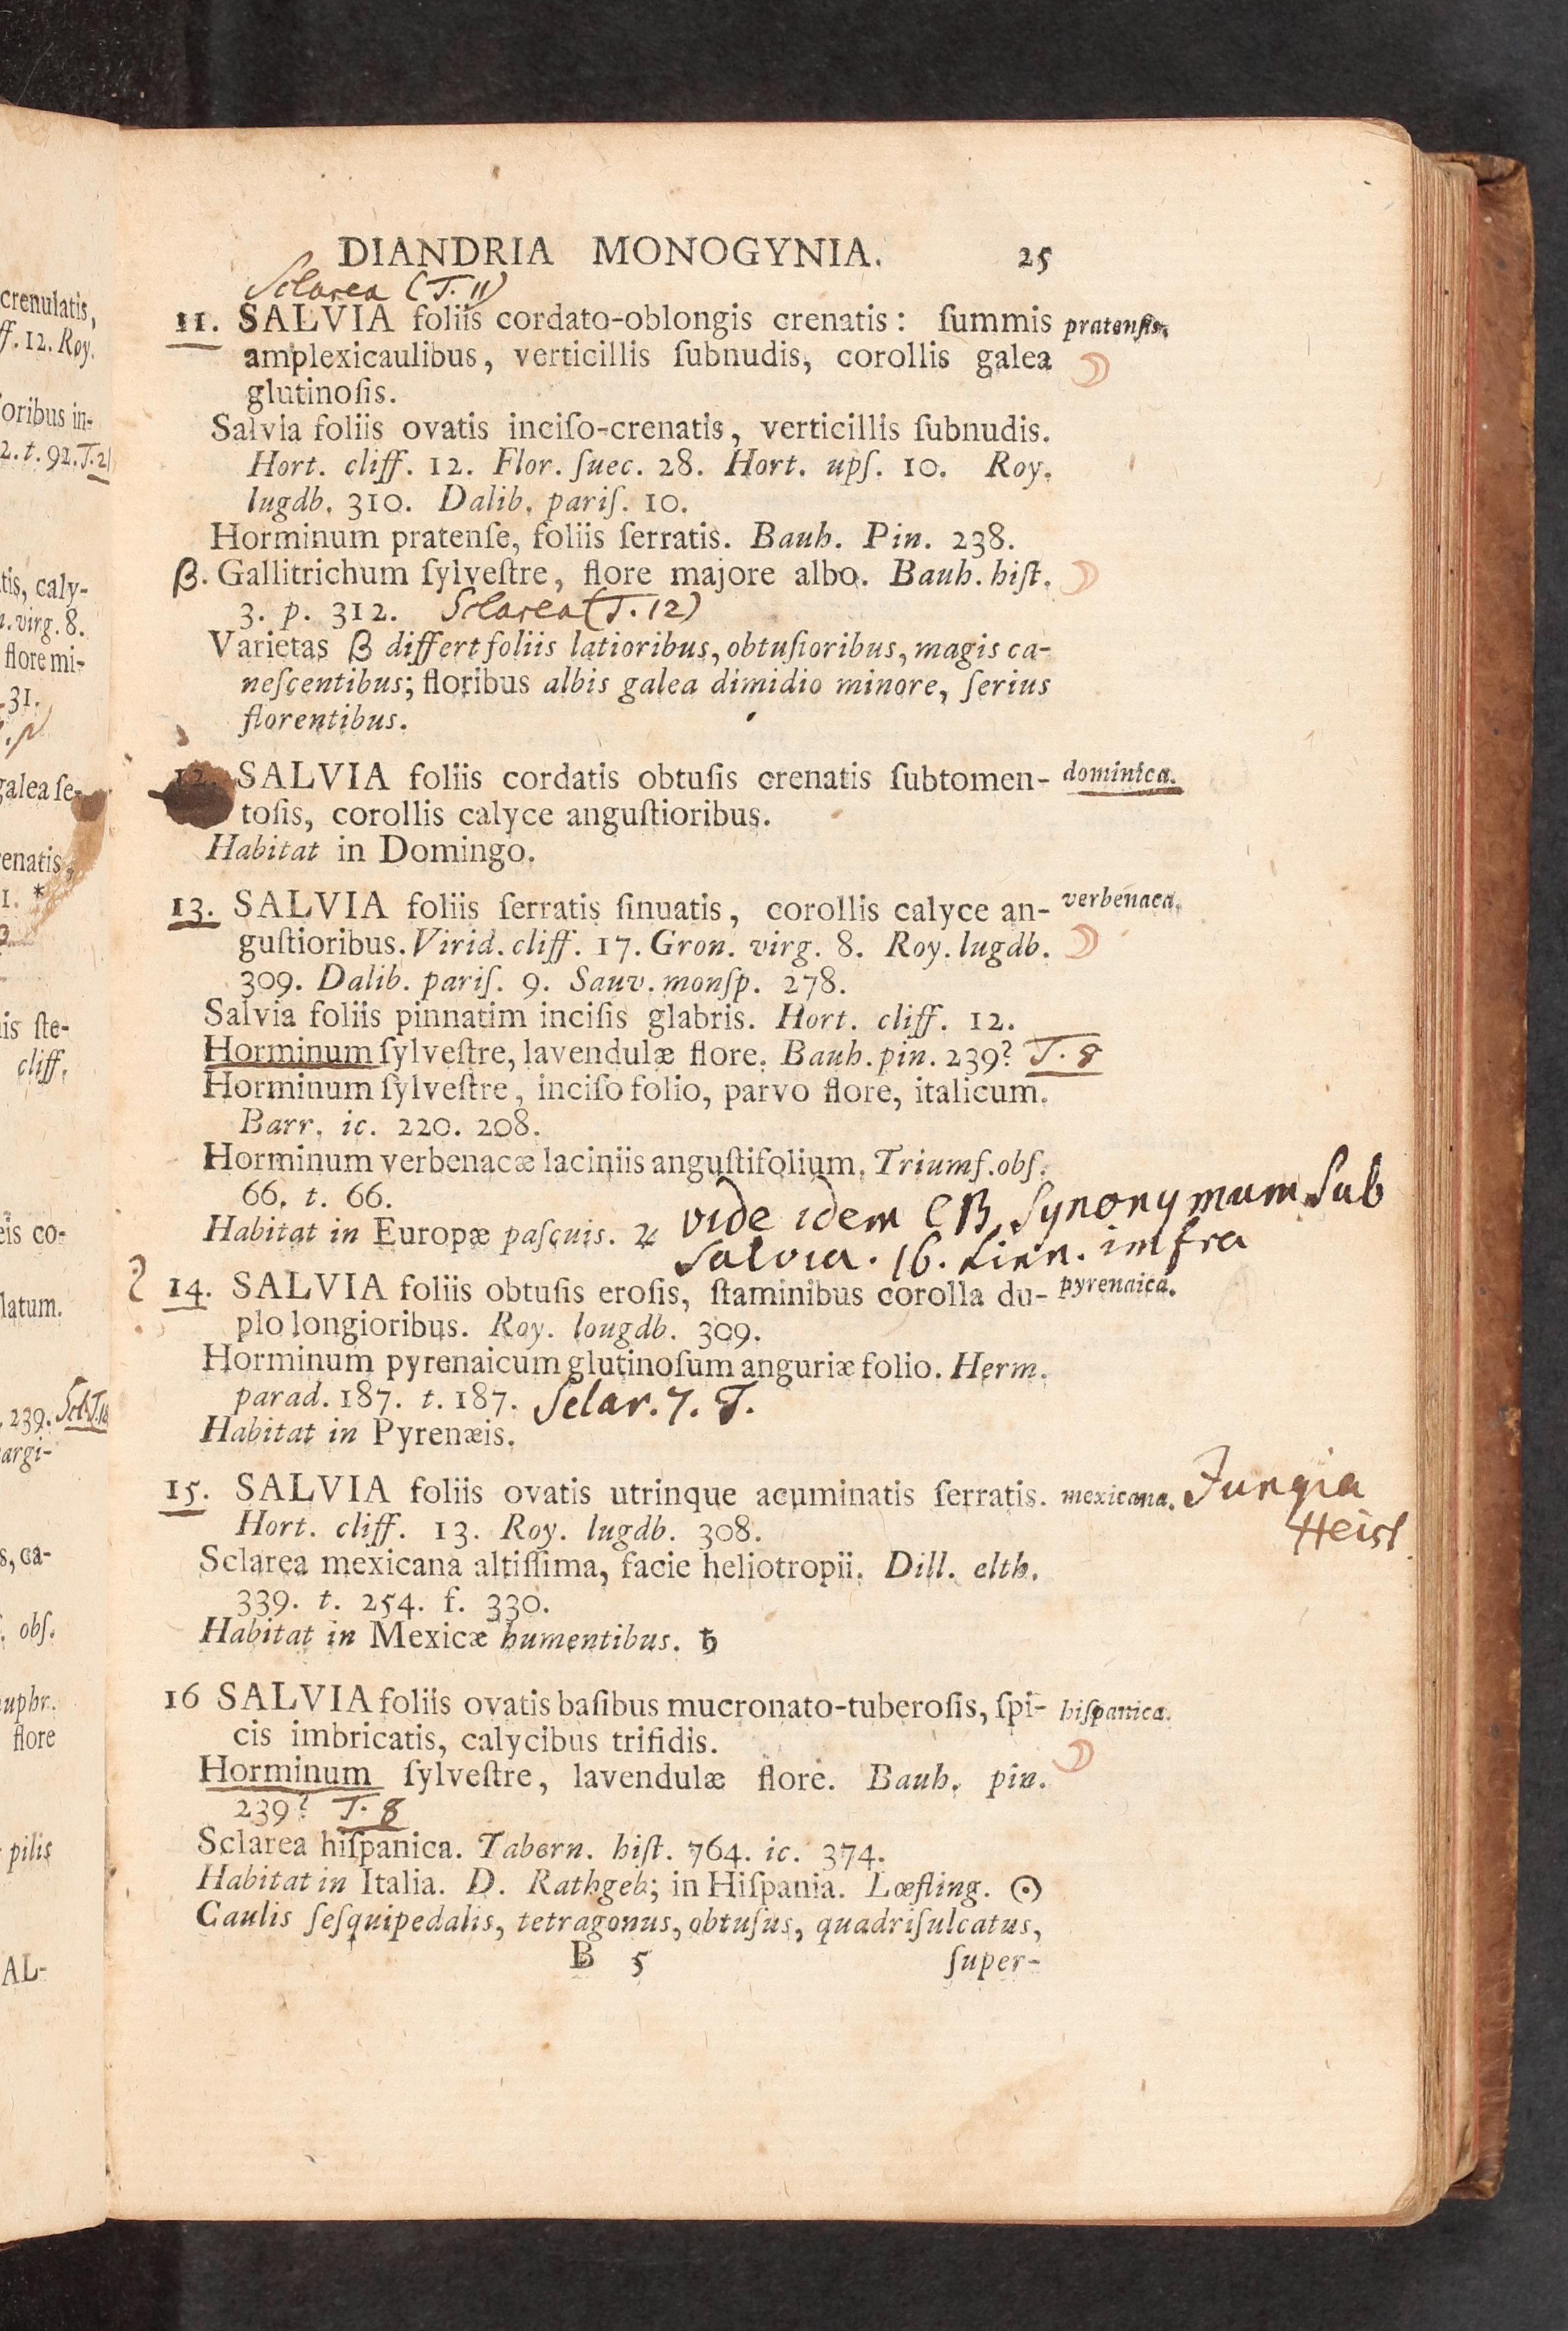 DIANDRIA MONOGYNIA. 25
Sclarea (T. 11)
11. SALVIA foliis cordato-oblongis crenatis: ſummis pratenſis.
amplexicaulibus, verticillis ſubnudis, corollis galea
glutinoſis.
Salvia foliis ovatis inciſo-crenatis, verticillis ſubnudis.
Hort. cliff. 12. Flor. ſuec. 28. Hort. upſ. 10. Roy.
lugdb. 310. Dalib. pariſ. 10.
Horminum pratenſe, foliis ſerratis. Bauh. Pin. 238.
β. Gallitrichum ſylveſtre, flore majore albo. Bauh. hiſt.
3. p. 312. Sclarea (T. 12)
Varietas β differt foliis latioribus, obtuſioribus, magis ca-
neſcentibus; floribus albis galea dimidio minore, ſerius
florentibus.
12. SALVIA foliis cordatis obtuſis crenatis ſubtomen- dominica.
toſis, corollis calyce anguſtioribus.
Habitat in Domingo.
13. SALVIA foliis ſerratis ſinuatis, corollis calyce an- verbenaca.
guſtioribus. Virid. cliff. 17. Gron. virg. 8. Roy. lugdb.
309. Dalib. pariſ. 9. Sauv. monſp. 278.
Salvia foliis pinnatim inciſis glabris. Hort. cliff. 12.
Horminum ſylveſtre, lavendulæ flore. Bauh. pin. 239? T. 8
Horminum ſylveſtre, inciſo folio, parvo flore, italicum.
Barr. ic. 220. 208.
Horminum verbenacæ laciniis anguſtifolium. Triumf. obſ.
66. t. 66.
Habitat in Europæ paſcuis. ♃ vide idem CB. Synonymum Sub
Salvia. 16. Linn. imfra
? 14. SALVIA foliis obtuſis eroſis, ſtaminibus corolla du- pyrenaica.
plo longioribus. Roy. lougdb. 309.
Horminum pyrenaicum glutinoſum anguriæ folio. Herm.
parad. 187. t. 187. Sclar. 7. T.
Habitat in Pyrenæis.
15. SALVIA foliis ovatis utrinque acuminatis ſerratis. mexicana. Jungia
Heist.
Hort. cliff. 13. Roy. lugdb. 308.
Sclarea mexicana altiſſima, facie heliotropii. Dill. elth.
339. t. 254. f. 330.
Habitat in Mexicæ humentibus. ♄
16 SALVIA foliis ovatis baſibus mucronato-tuberoſis, ſpi- hiſpanica.
cis imbricatis, calycibus trifidis.
Horminum ſylveſtre, lavendulæ flore. Bauh. pin.
239? T. 8
Sclarea hiſpanica. Tabern. hiſt. 764. ic. 374.
Habitat in Italia. D. Rathgeb; in Hiſpania. Lœfling. ☉
Caulis ſeſquipedalis, tetragonus, obtuſus, quadriſulcatus,
B 5 ſuper-